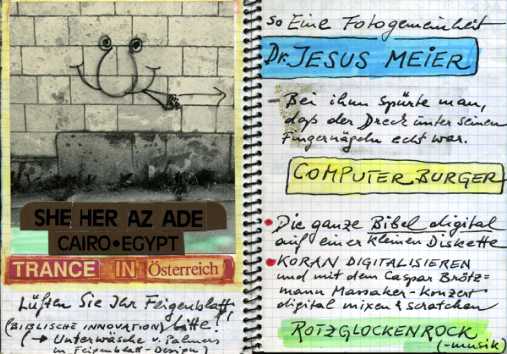 SHE HER AZ ADE
CAIRO•EGYPT
TRANCE IN Österreich
Lüften Sie Ihr Feigenblatt,
(BIBLISCHE INNOVATION) bitte!
(→ Unterwäsche v. Palmers
in Feigenblatt-Design)
so Eine Fotogemeinheit
Dr. JESUS MEIER
– Bei ihm spürte man,
daß der Dreck unter seinen
Fingernägeln echt war.
COMPUTER BURGER
• Die ganze Bibel digital
auf einer kleinen Diskette
• KORAN DIGITALISIEREN
und mit dem Caspar Brötz-
mann Massaker-Konzert
digital mixen & scratchen
ROTZGLOCKENROCK
(-musik)